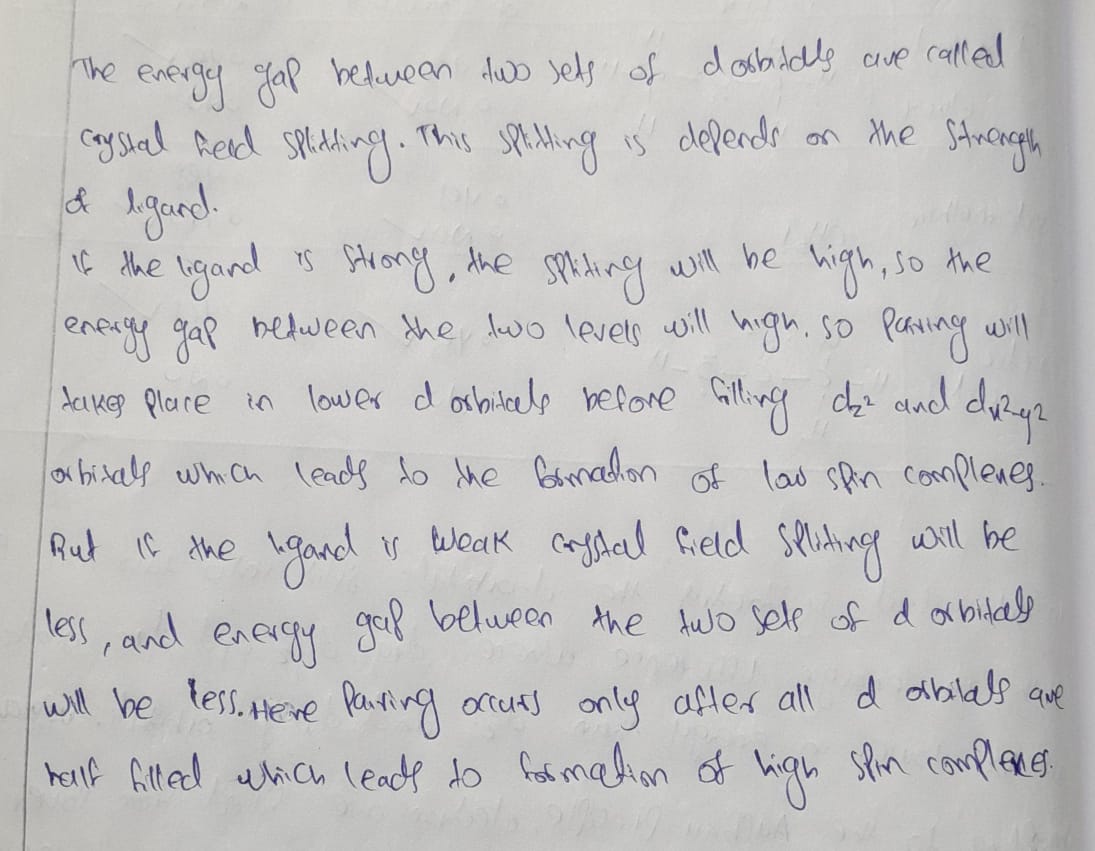 The energy gap between two sets of d orbitals are called
crystal field splitting. This splitting is depends on the strength
of ligand.
if the ligand is strong, the spliting will be high, so the
energy gap between the two levels will high. so Pairing will
takes place in lower d orbitals before filling dz² and dx²y²
orbitals which leads to the formation of low spin complexes.
But if the ligand is weak crystal field spliting will be
less, and energy gap between the two sets of d orbitals
will be less. Here Pairing occurs only after all d orbitals are
half filled which leads to formation of high spin complexes.